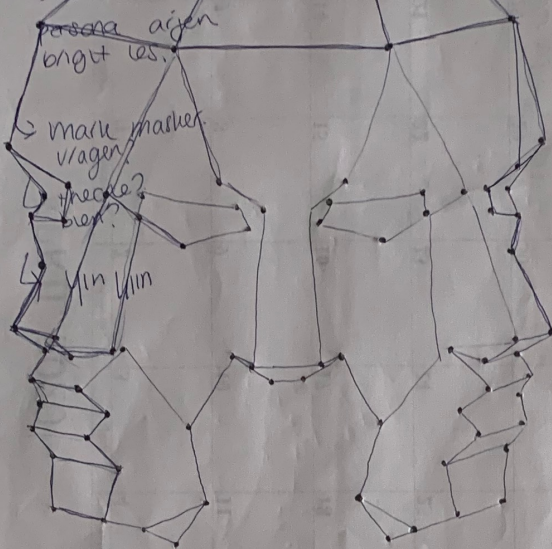 persona aijen
bright les.
↳ mark masker
vragen?
↳ theecke?
bien?
↳ Yin Yin